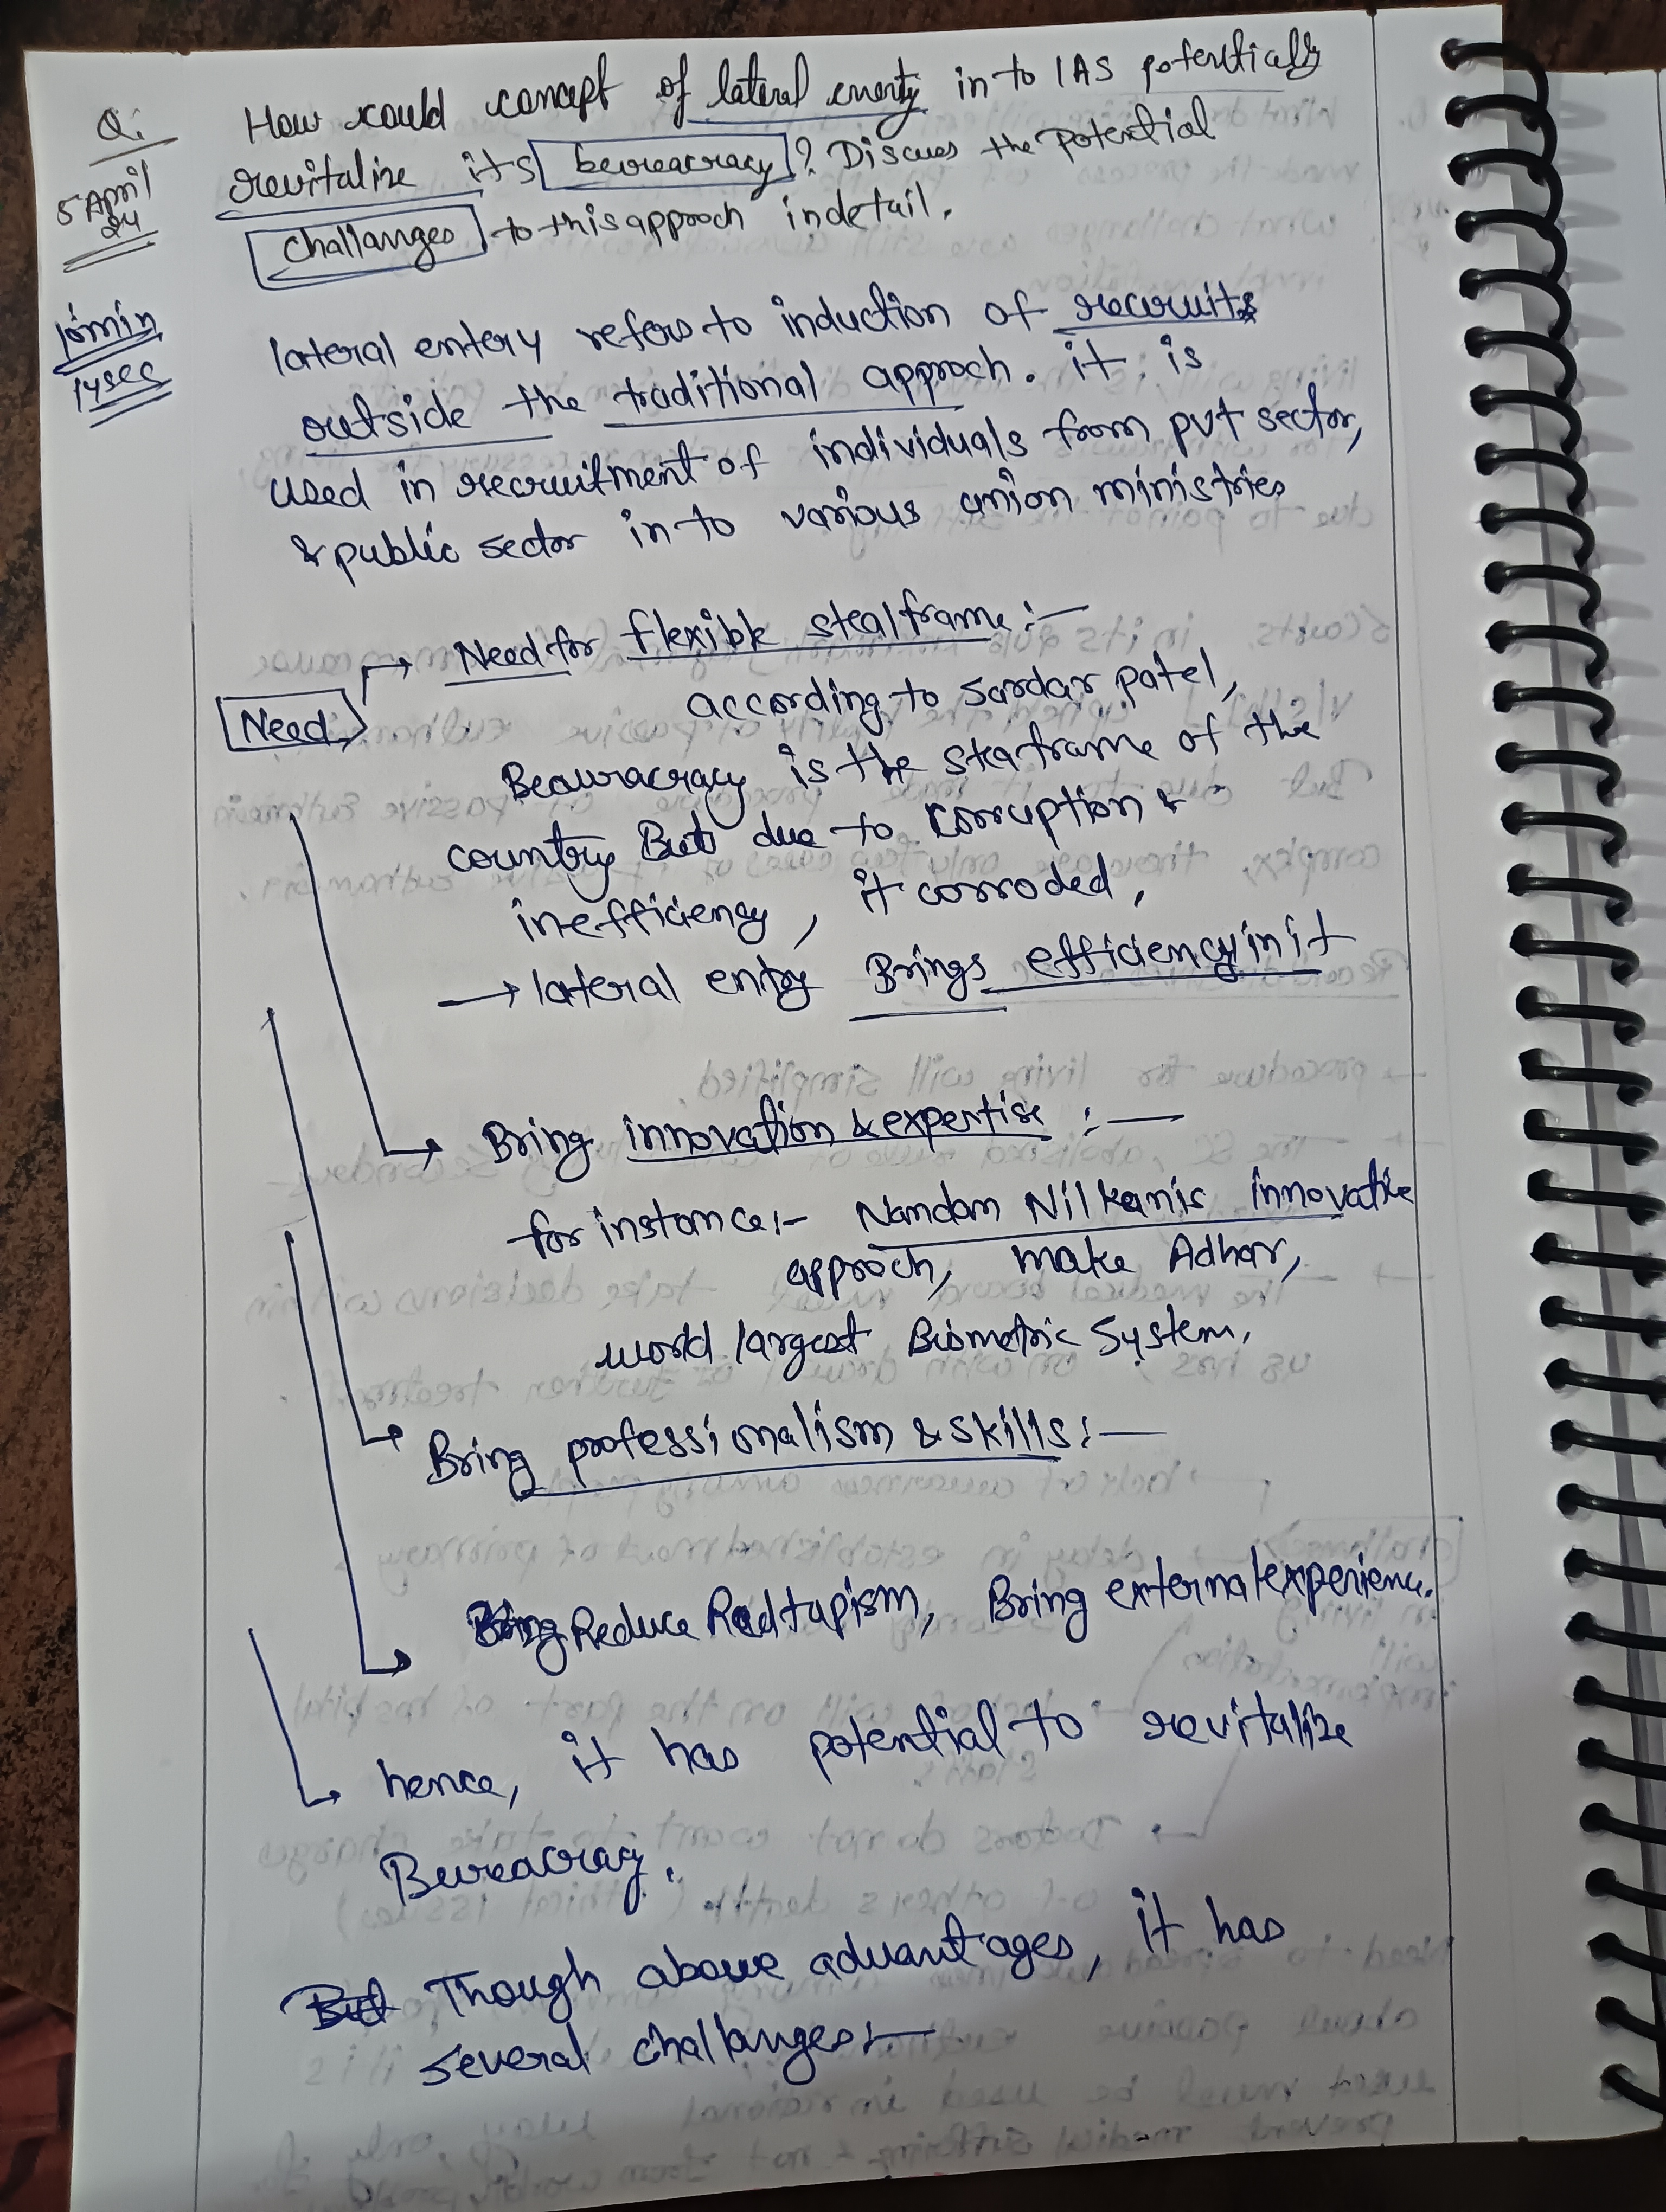 Q:
How could concept of lateral enerty in to IAS potentially
revitalize its bereacracy? Discues the potential
challanges to this approch indetail.
5 April
24
10min
14sec
lateral entery refers to induction of recruits
outside the traditional approch. it is
used in recruitment of individuals from pvt sector,
& public sector in to various union ministries
Need
→ Need for flexible stealframe :-
according to Sardar patel,
Beauracracy is the steaframe of the
country But due to corruption &
inefficiency, it corroded,
→ lateral entry Brings efficiency in it
Bring innovation & expertise :-
for instance:- Nandan Nilkanis innovative
approch, make Adhar,
world largest Biometric System,
Bring professionalism & skills:-
Reduce Readtapism, Bring external experience.
hence, it has potential to revitalize
Bureacracy.
But Though above advantages, it has
several challanges:-